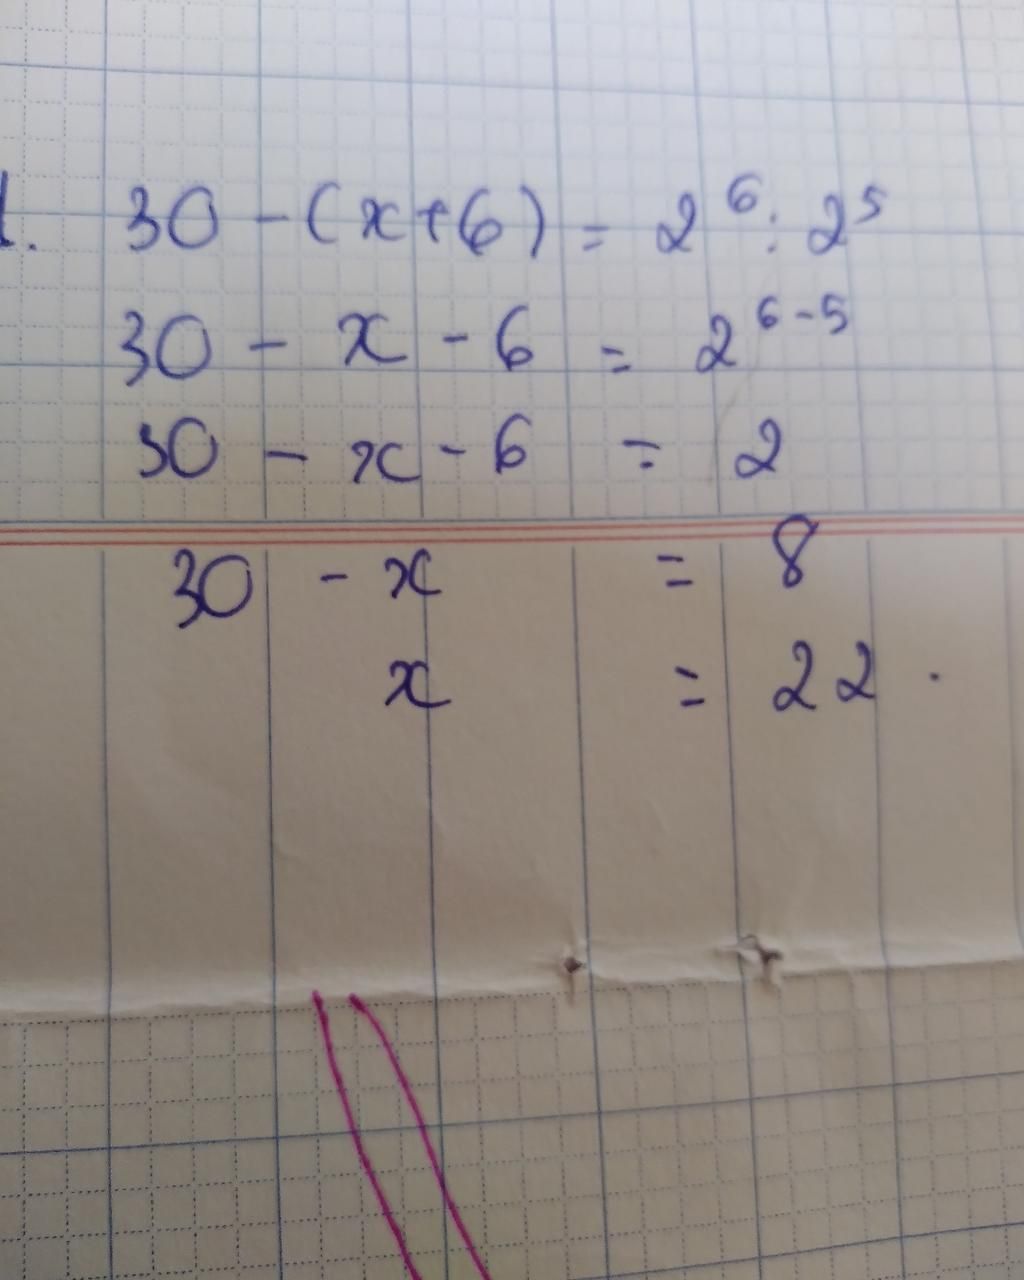 1. 30 - (x+6) = 2⁶ : 2⁵
30 - x - 6 = 2⁶⁻⁵
30 - x - 6 = 2
30 - x = 8
x = 22 .